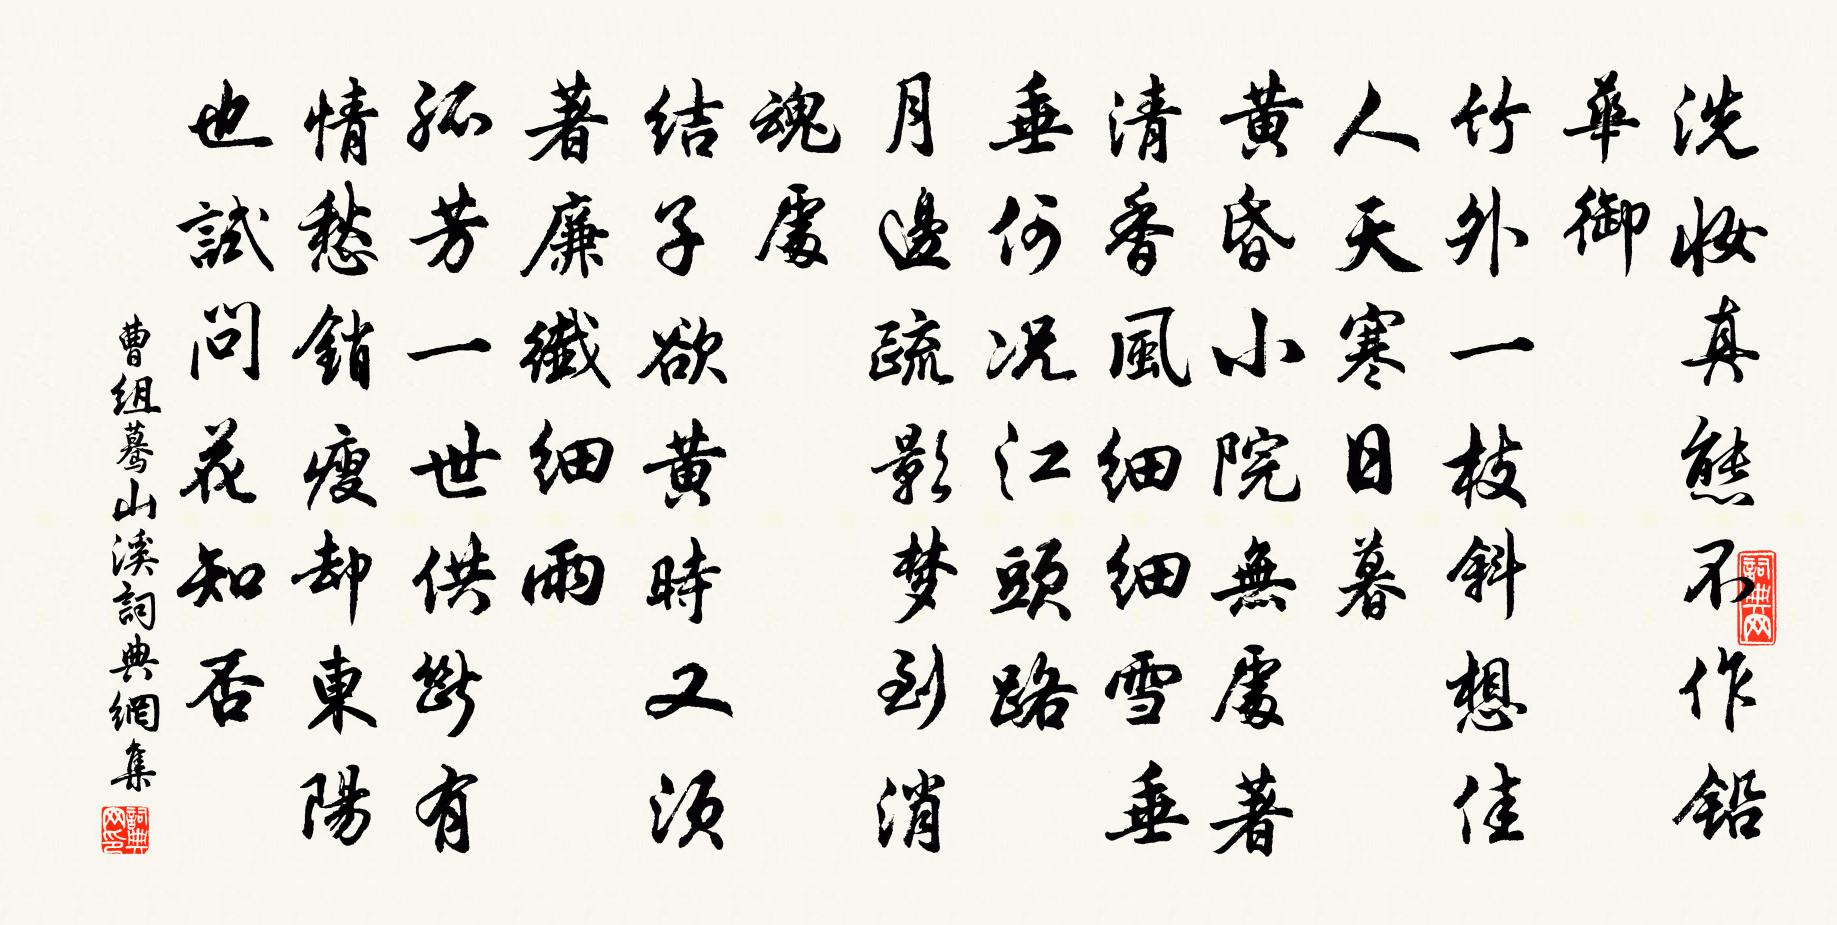 洗妝真態不作鉛
華御
竹外一枝斜想佳
人天寒日暮
黃昏小院無處著
清香風細細雪垂
垂何況江頭路
月邊疏影夢到消
魂處
結子欲黃時又須
著廉纖細雨
孤芳一世供斷有
情愁銷瘦卻東陽
也試問花知否
曹組驀山溪詞典網集
詞典網
詞典網印